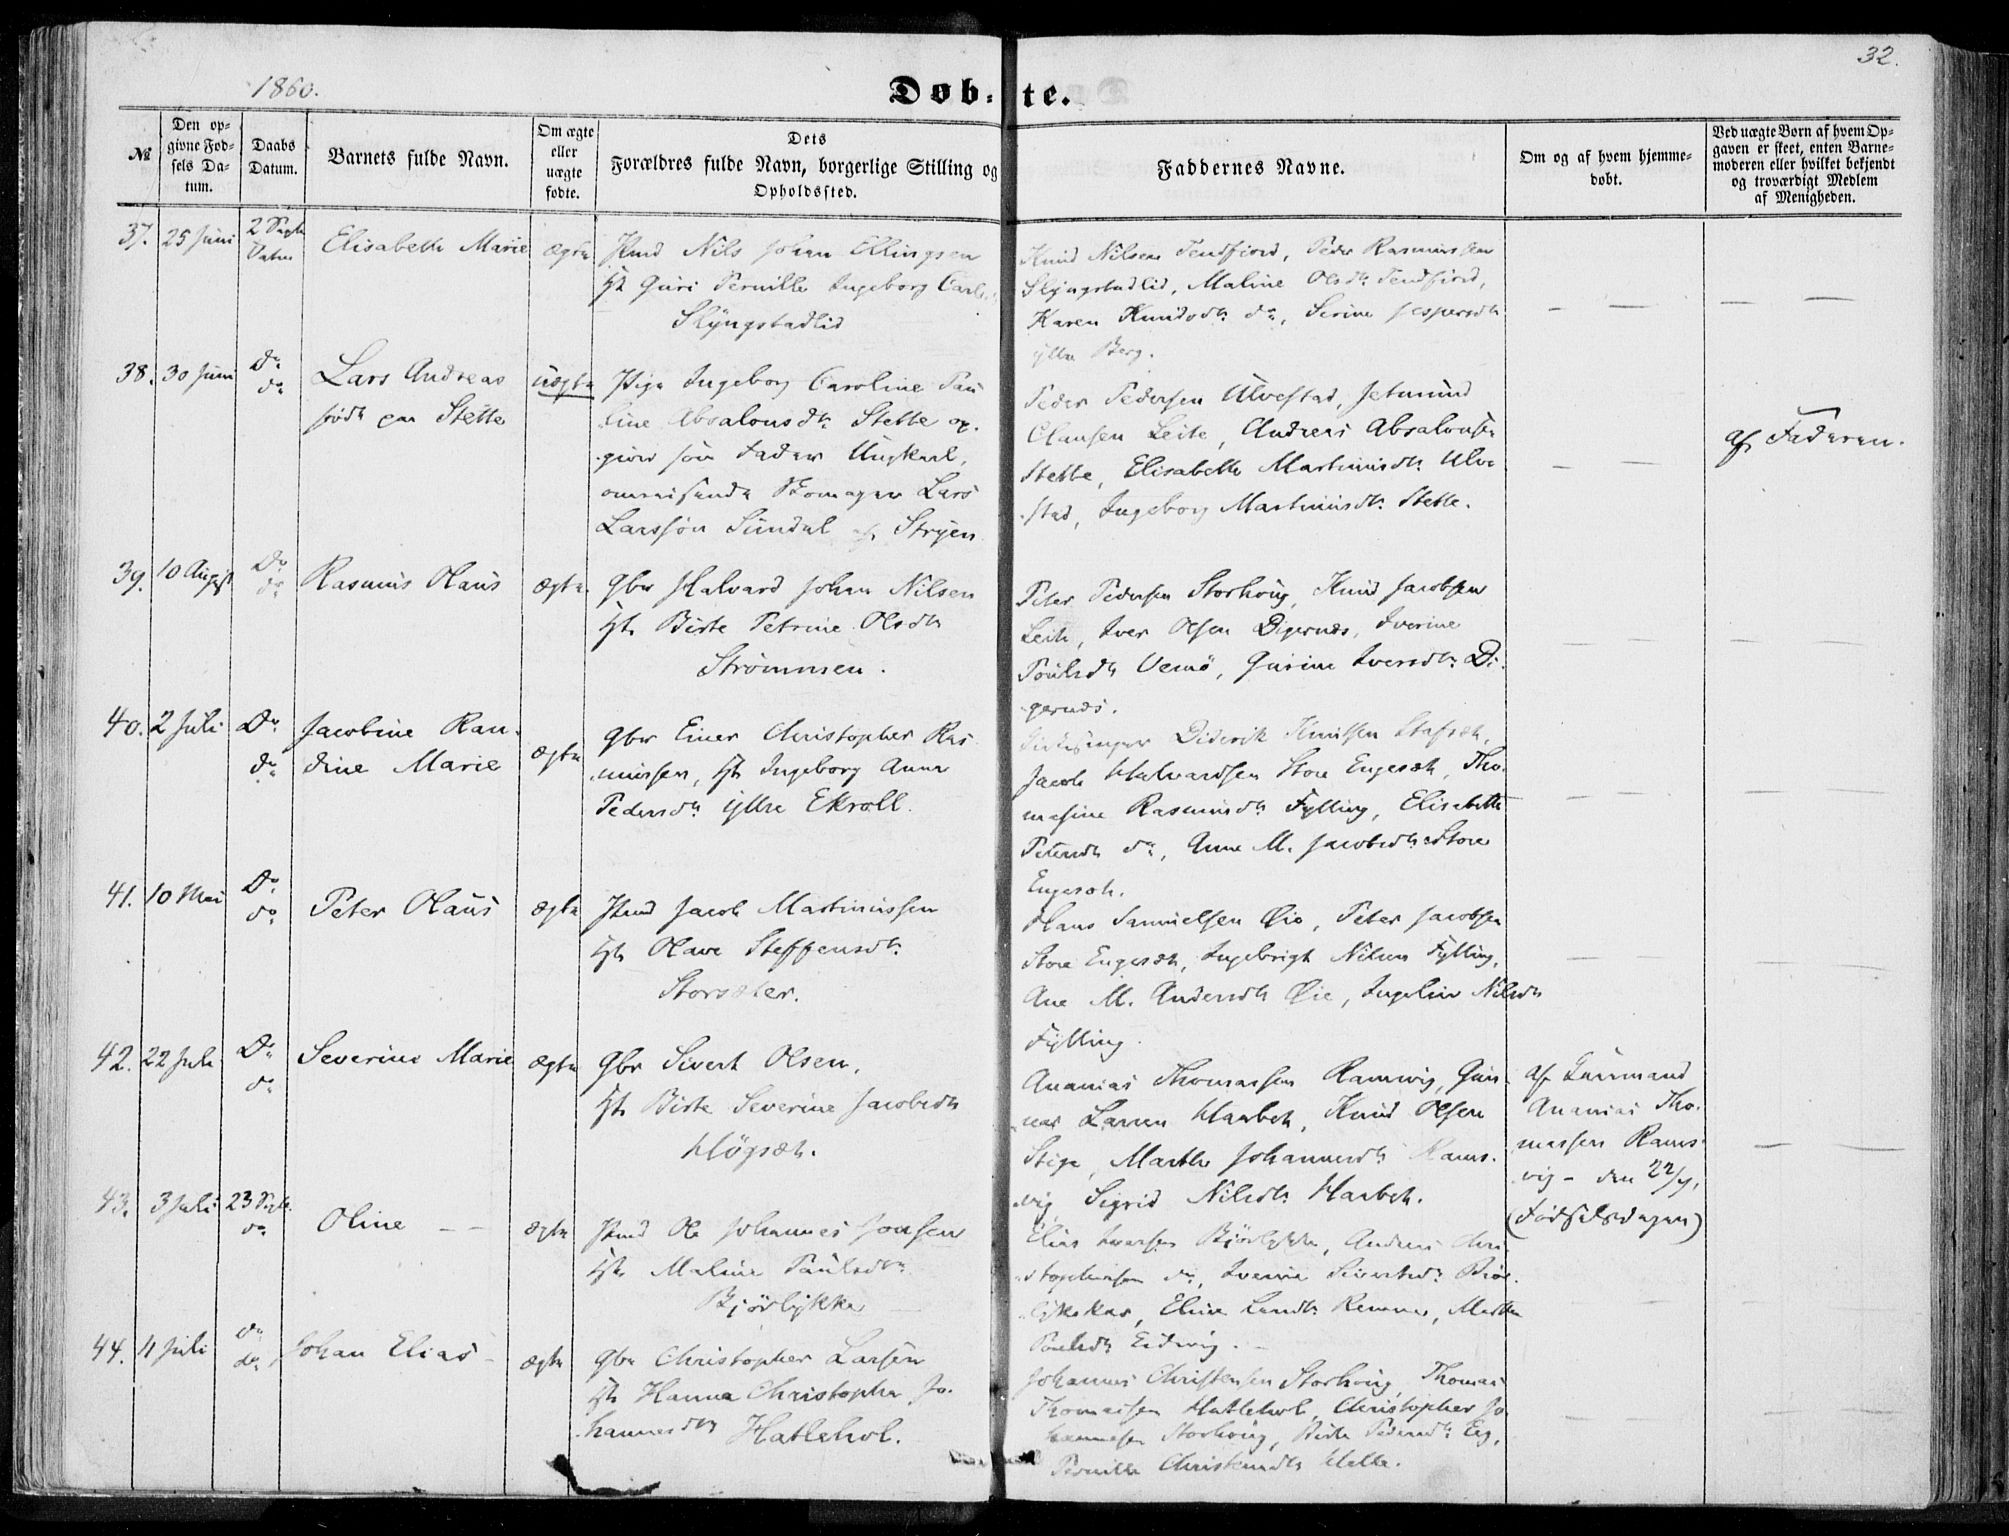 1860.
Døb-te.
32.
№
Den op-
givne Fød-
sels Da-
tum.
Daabs
Datum.
Barnets fulde Navn.
Om ægte
eller
uægte
fødte.
Dets
Forældres fulde Navn, borgerlige Stilling og
Opholdssted.
Faddernes Navne.
Om og af hvem hjemme-
døbt.
Ved uægte Børn af hvem Op-
gaven er skeet, enten Barne-
moderen eller hvilket bekjendt
og troværdigt Medlem
af Menigheden.
37. 25 Juni 2 Sept Elisabeth Marie ægte
Nils Johan Ellingsen
Guri Pernille Ingeborg
Slyngstadlid
Knud Nilsen Tendfiord, Peder Rasmussen
Slyngstadlid, Maline Olsdr Tendfiord,
Karen Knudsdr do, Serine Jespersdr
ytte Berg.
38. 30 Juni Do do Lars Andreas uægte
født paa Stette
Pige Ingeborg Caroline Pau
line Absalonsdr Stette op.
giver som Fader Ungkarl,
omreisende Skomager Lars
Larssøn Sundal af Stryen
Peder Pedersen Ulvestad, Jetmund
Clausen Leite, Andreas Absalonsen
Stette, Elisabeth Martinusdr Ulve
stad, Ingeborg Martinusdr Stette.
af Faderen.
39. 10 August Do do Rasmus Olaus ægte
Gbr Halvard Johan Nilsen
Birte Petrine Olsdr
Strømmen.
Peter Pedersen Storhoug, Knud Jacobsen
Leite, Iver Olsen Digernæs, Iverine
Poulsdr Vemø, Gurine Iversdr Di-
gernæs.
40. 2 Juli Do do Jacobine Ran-
dine Marie ægte
Gbr Einer Christopher Ras
mussen, Ingeborg Anna
Pedersdr yttre Ekroll.
Diderik Knutsen
Jacob Halvardsen Store Engesæt, Tho-
masine Rasmusdr Fylling, Elisabeth
Petersdr do, Anne M. Jacobsdr Store
Engesæt.
41. 10 Mai Do do Peter Olaus ægte
Jacob Martinussen
Olave Steffensdr
Storsæter.
Hans Samuelsen Øie, Peter Jacobsen
Store Engesæt, Ingebrigt Nilsen Fylling,
Ane M. Andersdr Øie, Nilsdr
Fylling.
42. 22 Juli Do do Severine Marie ægte
Gbr Sivert Olsen,
Birte Severine Jacobsdr
Høgsæt.
Ananias Thomassen Ramsvig, Gun
nar Larsen Harbek, Knud Olsen
Stige, Marthe Johannesdr Rams-
vig Sigrid Nilsdr Harbek.
af
Ananias Tho-
massen Rams-
vig - den 22/7,
(Fødselsdagen)
43. 3 Juli 23 Sept. do Oline ægte
Ole Johannes Jonsen
Maline Paulsdr
Bjørlykke
Elias Iversen Bjørlykke, Andreas Chri-
stophersen do, Iverine Sivertsdr Bjør-
, Eline Larsdr Remme, Marthe
Paulsdr Eidsvig.
44. 4 Juli do do Johan Elias ægte
Gbr Christopher Larsen
Hanna Christopha Jo-
hannesdr Hatlehol.
Johannes Christensen Storhoug, Thomas
Thomassen Hatlehol, Christopher Jo-
hannesen Storhoug, Birte Pedersdr Eeg,
Pernille Helle.